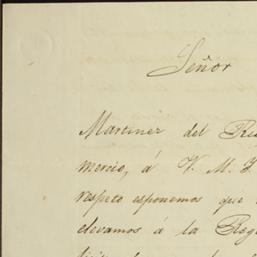 Señor
Martinez del Rio
mercio, á V. M. I.
respeto esponemos que
elevamos á la Reg